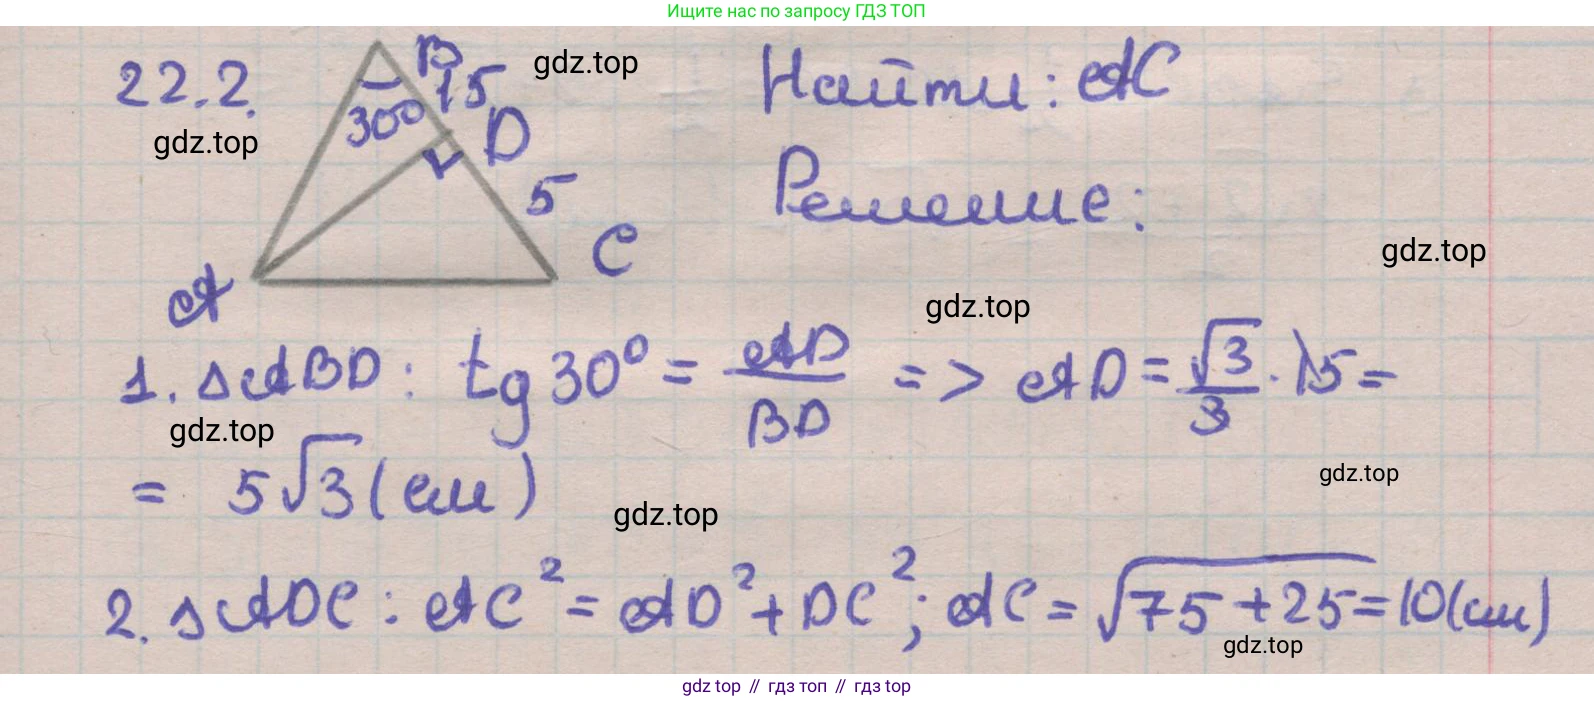 Ищите нас по запросу ГДЗ ТОП
22.2.
B
30°
15
D
5
C
A
Найти: AC
Решение:
gdz.top
gdz.top
gdz.top
gdz.top
1. ΔABD: tg 30° = AD/BD => AD = √3/3 · 15 =
gdz.top
gdz.top
= 5√3 (см)
gdz.top
2. ΔADC: AC² = AD² + DC²; AC = √75+25 = 10(см)
gdz.top
gdz top // гдз топ // gdz top